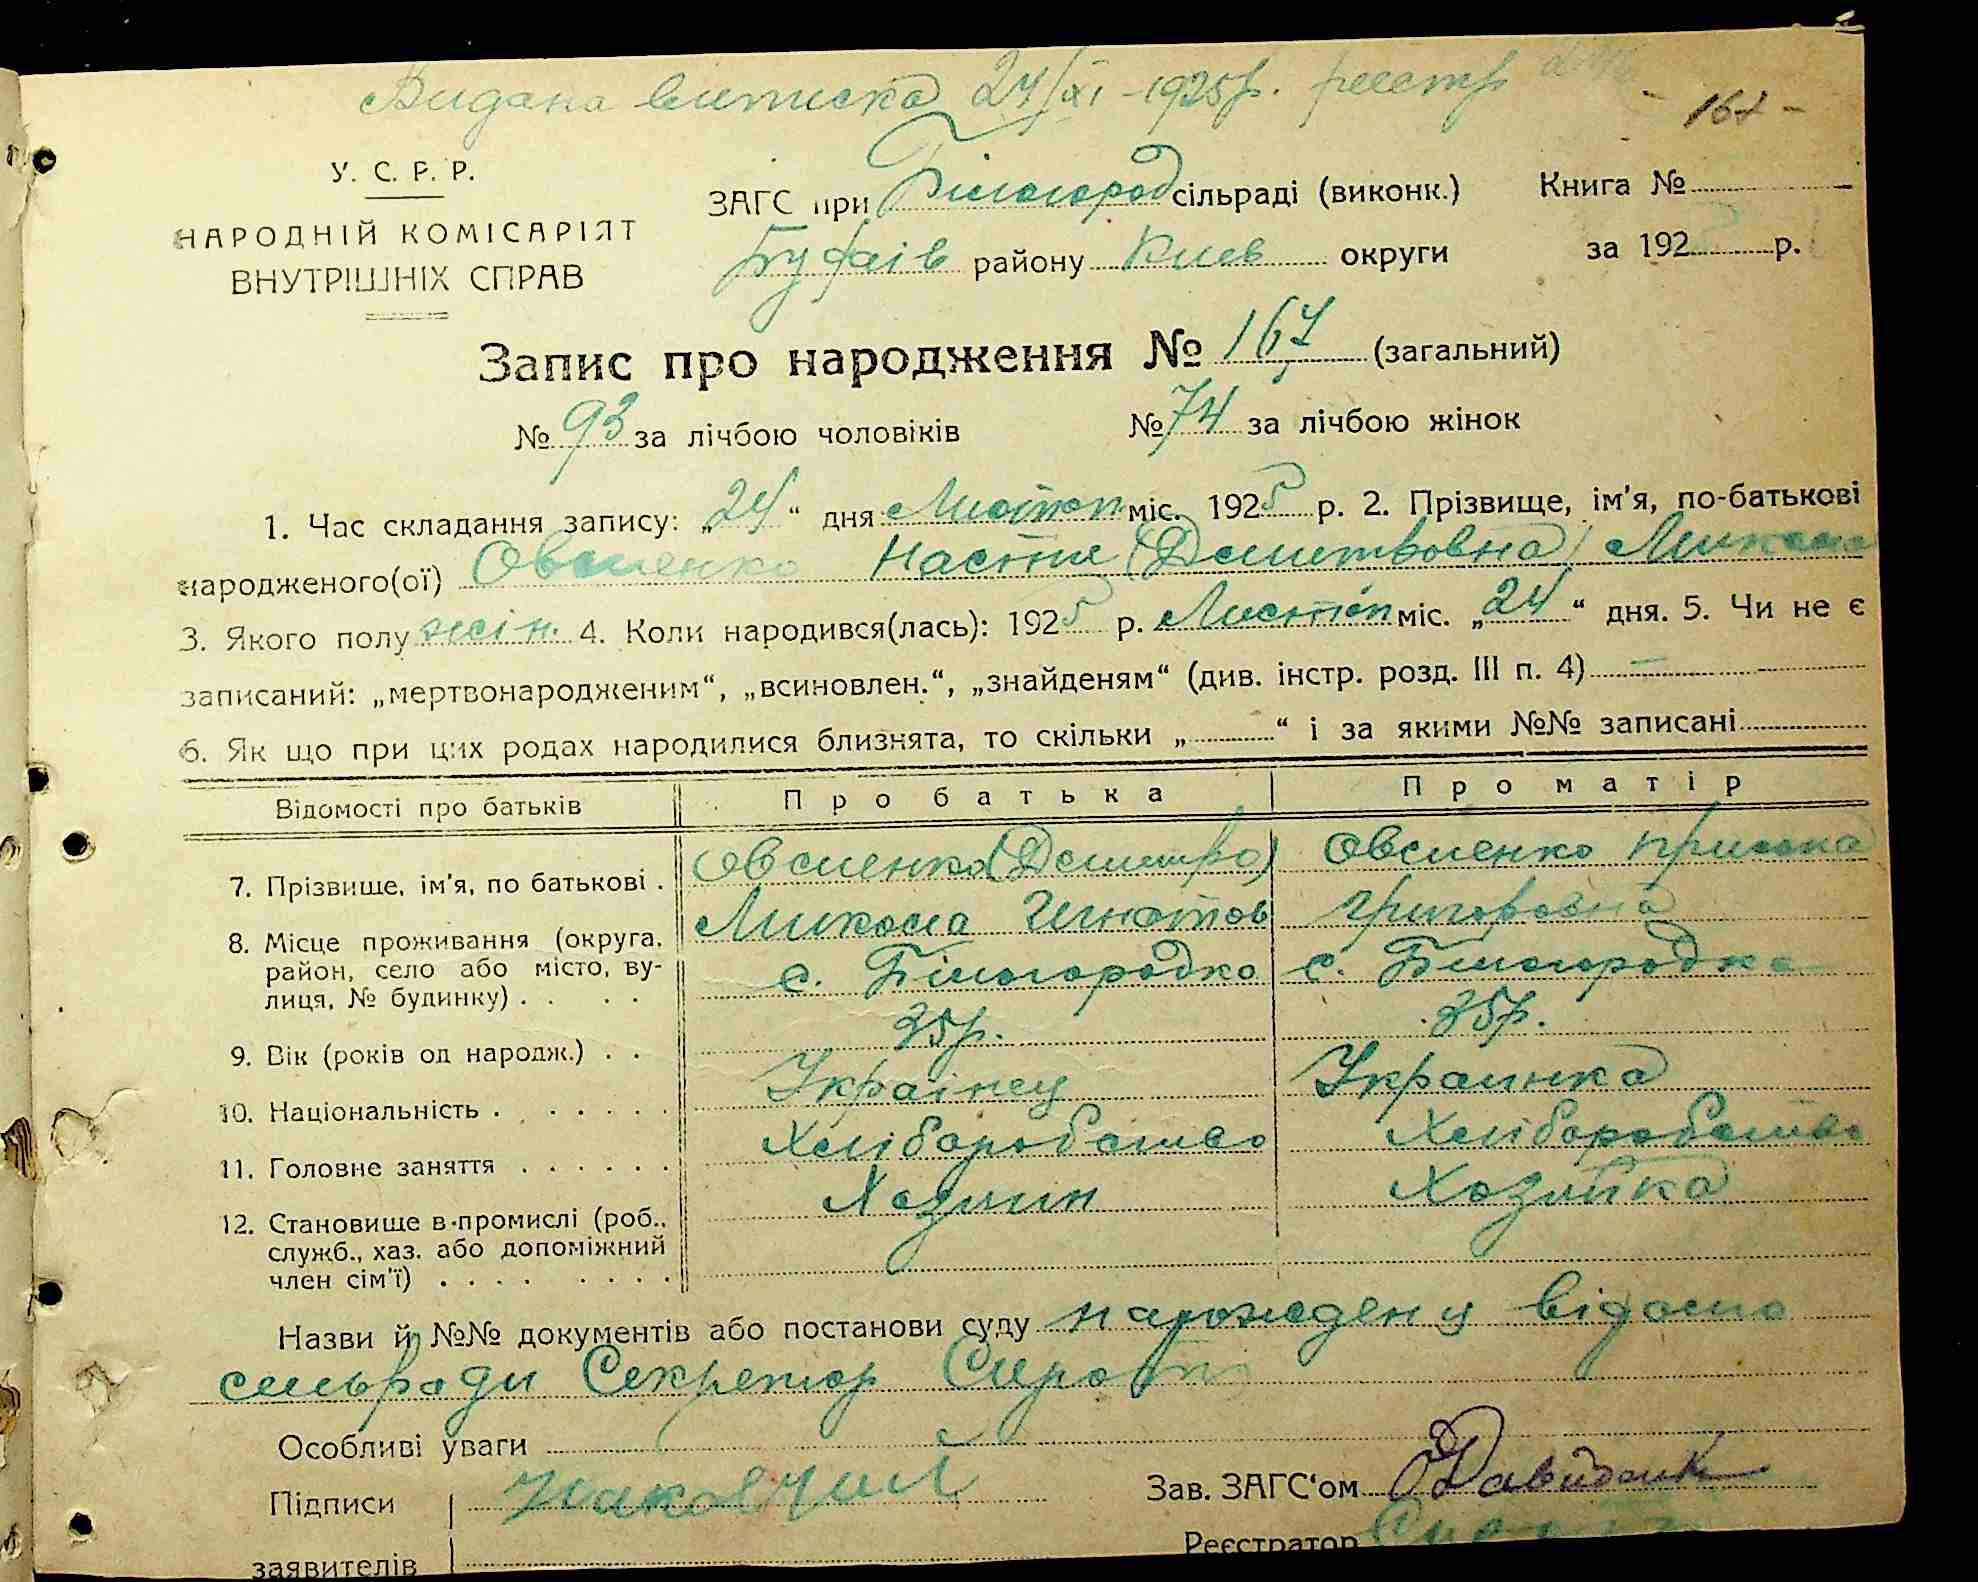 Видана виписка 24/XI-1925р. реестр
167 -
У. С. Р. Р.
НАРОДНІЙ КОМІСАРІЯТ
ВНУТРІШНІХ СПРАВ
ЗАГС при Білогород сільраді (виконк.) Книга №
Буфаів района Киев округи за 192 р.
Запис про народження № 167 (загальний)
№ 93 за лічбою чоловіків № 74 за лічбою жінок
1. Час складання запису: „24“ дня Листоп міс. 1925 р. 2. Прізвище, ім'я, по-батькові
народженого(ої) Овсиенко Настя (Дмитровна) Микола
3. Якого полу жін. 4. Коли народився(лась): 1925 р. Листоп міс. „24“ дня. 5. Чи не є
записаний: „мертвонародженим“, „всиновлен.“, „знайденям“ (див. інстр. розд. III п. 4) —
6. Як що при цих родах народилися близнята, то скільки „ “ і за якими №№ записані
Відомості про батьків Про батька Про матір
7. Прізвище, ім'я, по батькові . Овсиенко (Дмитро) Овсиенко Приська
Микола Игнатов Григоровна
8. Місце проживання (округа,
район, село або місто, ву-
лиця, № будинку) . . . . с. Білогородка с. Білогородка
9. Вік (років од народж.) . . 35р. 35р.
10. Національність . . . . . . Украінец Украинка
11. Головне заняття . . . . . . Хліборобство Хліборобство
12. Становище в промислі (роб.,
служб., хаз. або допоміжний
член сім'ї) . . . . . . . . Хозяин Хозяйка
Назви й №№ документів або постанови суду нарожден у відомо
сильради Секретор Сирота
Особливі уваги
Підписи
заявителів
Зав. ЗАГС'ом Давиденк
Реєстратор